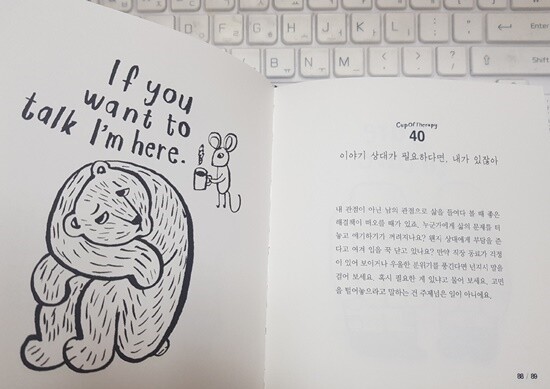 If you
want to
talk I'm here.
CupOfTherapy
40
이야기 상대가 필요하다면, 내가 있잖아
내 관점이 아닌 남의 관점으로 삶을 들여다 볼 때 좋은
해결책이 떠오를 때가 있죠. 누군가에게 삶의 문제를 터
놓고 얘기하기가 꺼려지나요? 왠지 상대에게 부담을 준
다고 여겨 입을 꾹 닫고 있나요? 만약 직장 동료가 걱정
이 있어 보이거나 우울한 분위기를 풍긴다면 넌지시 말을
걸어 보세요. 혹시 필요한 게 있냐고 물어 보세요. 고민
을 털어놓으라고 말하는 건 주제넘은 일이 아니에요.
88 / 89
Enter
Shift